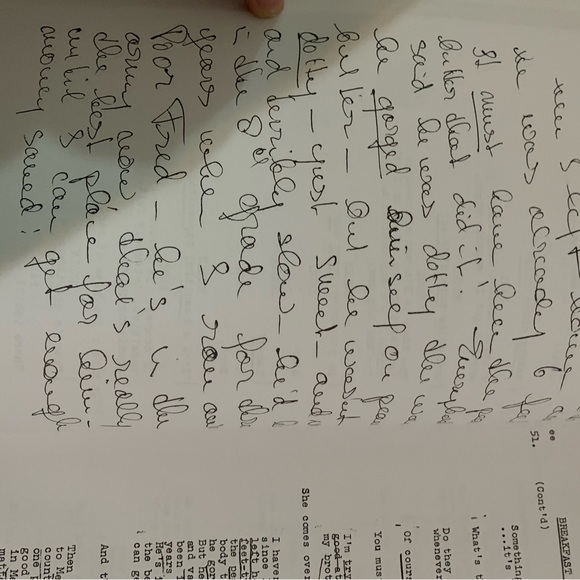 I left home
he was already 6
It must have been the
butter that did it.
said he was dotty the
he gorged himself on
butter — but he wasn't
dotty — just sweet — and
and terribly slow — he'd
in the 8th grade for
years when I ran
Poor Fred — he's in the
army now that's really
the best place for him —
until I can get enough
money saved:
ee
51.
BREAKFAST
(Cont'd)
Somethin
...it's
What's
Do they
whenever
Or cours
You mus
I'm try
my brot
She comes over
I have
since
left h
feet-t
the pe
body t
he
But he
and va
been
years
He's i
the b
can g
And t
Then
to Me
count
one
good
in M
matt